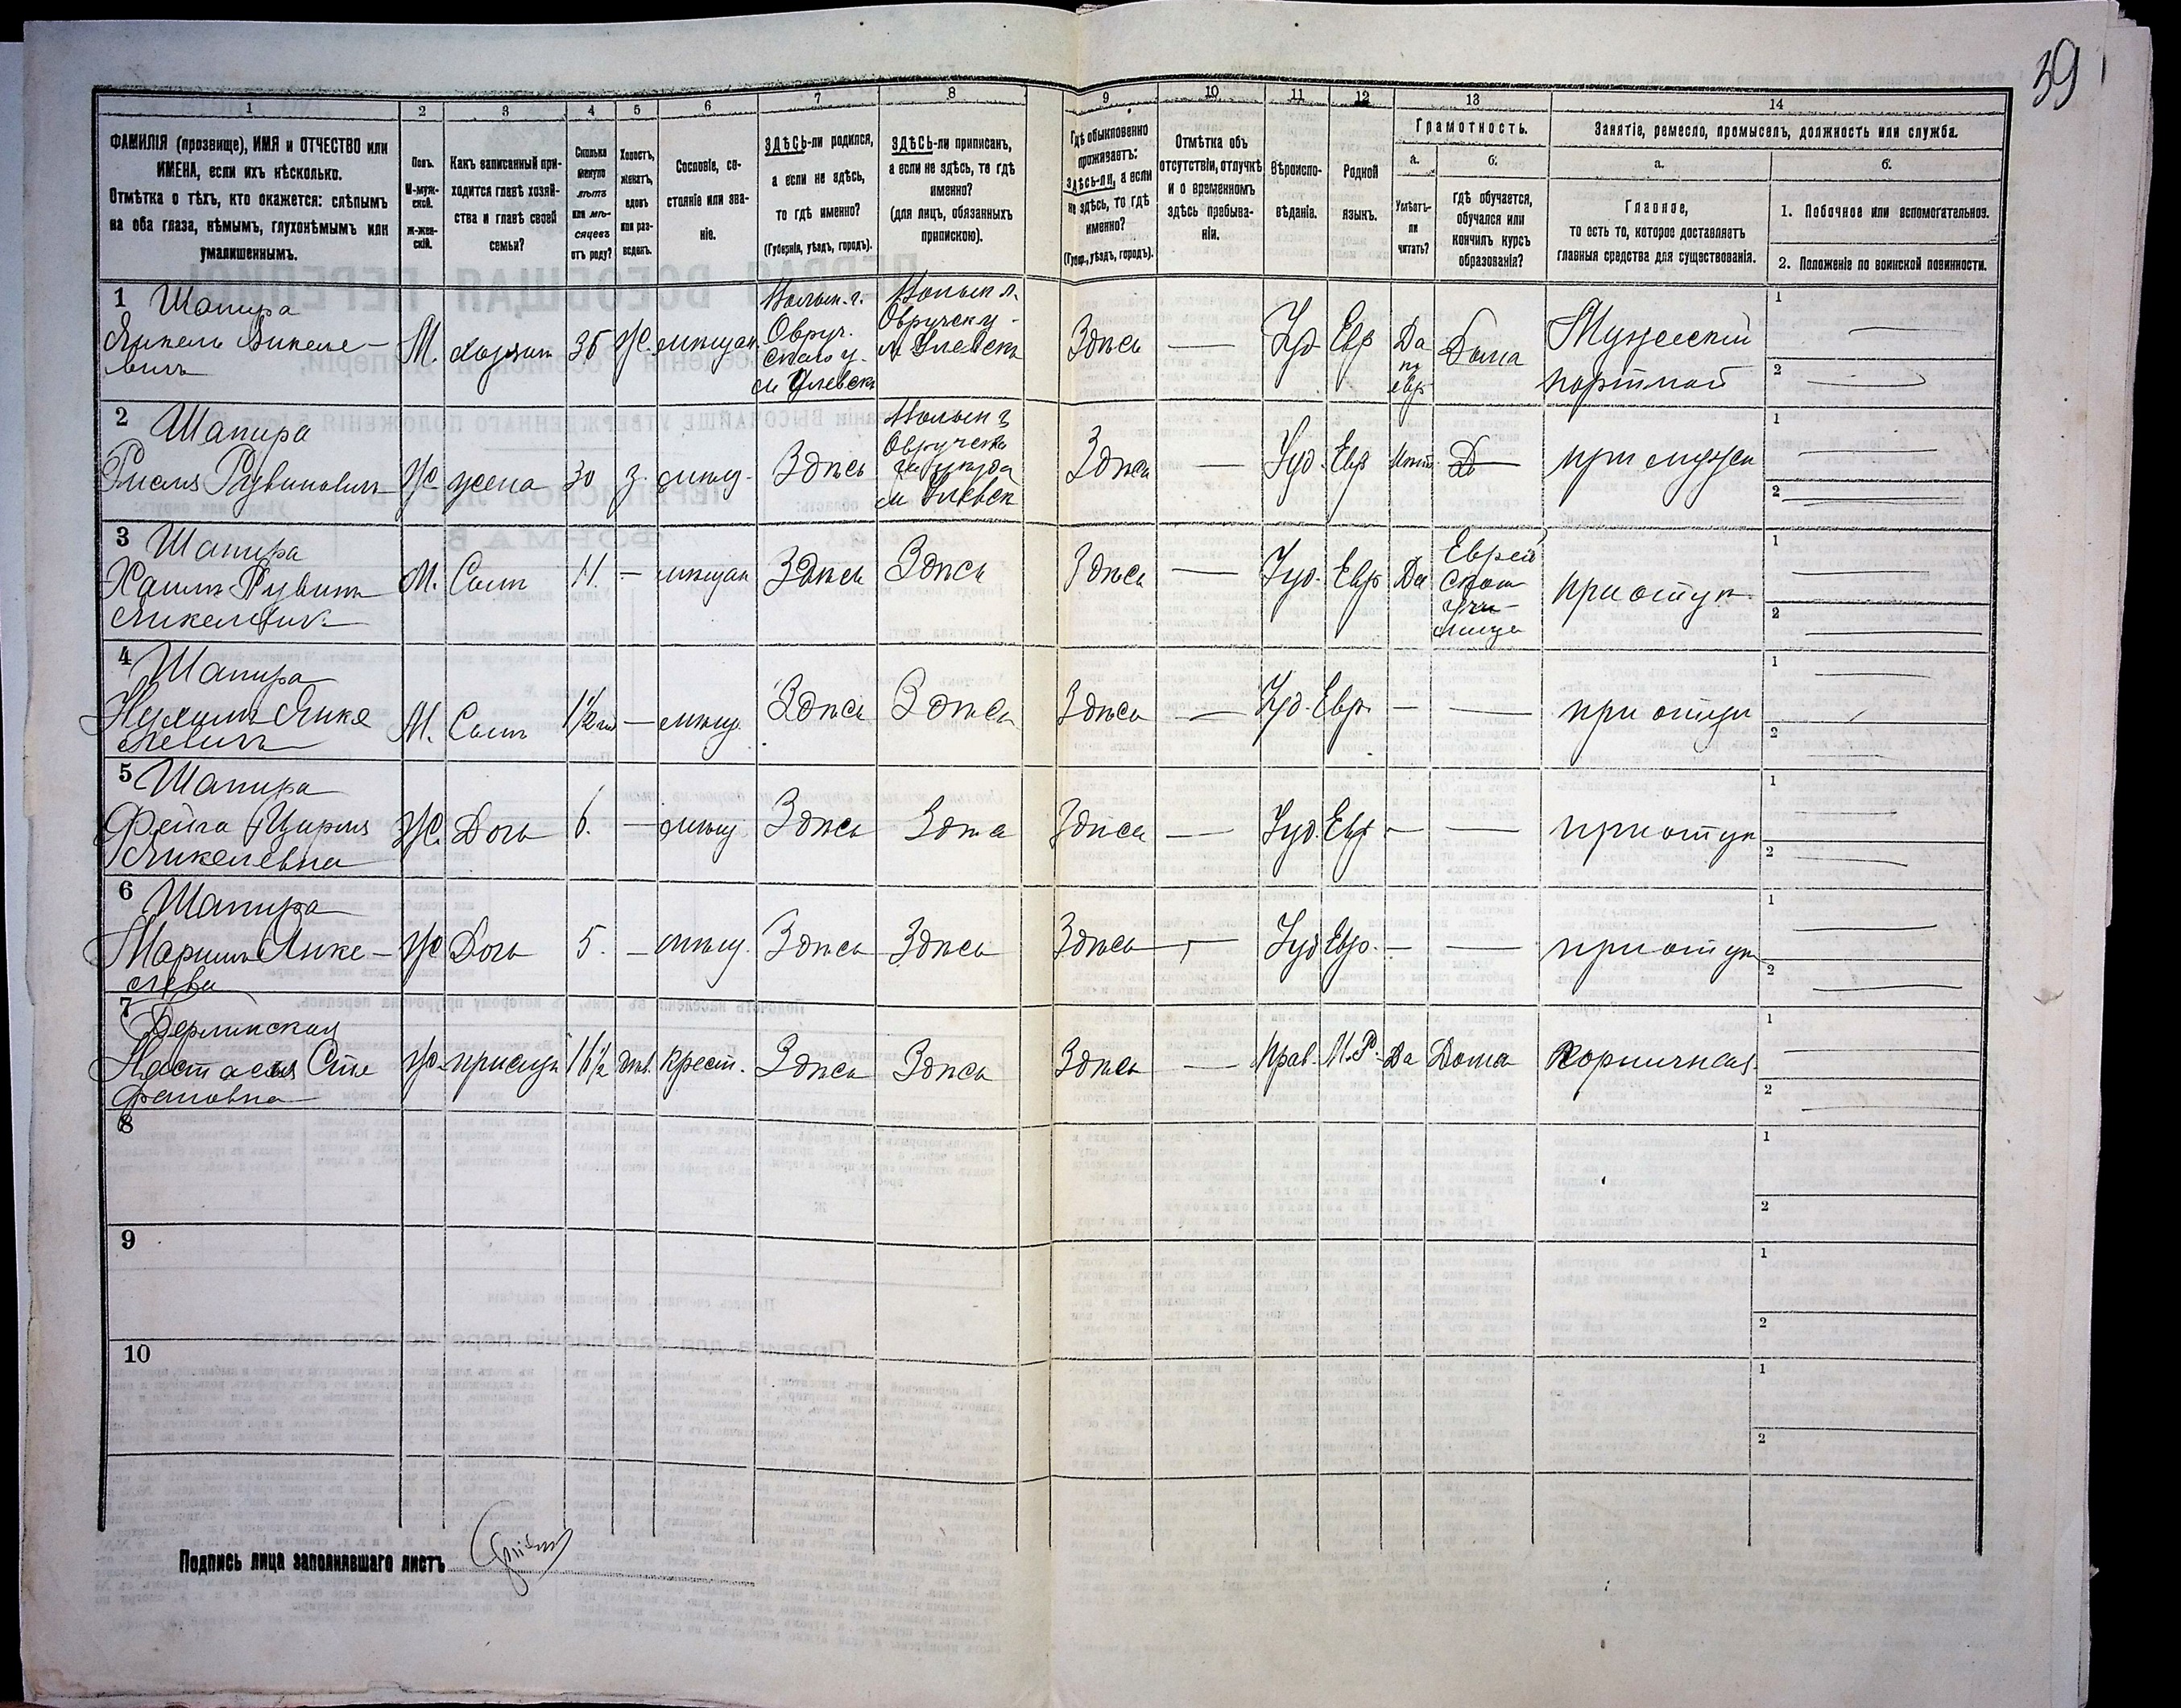 39
1
2
3
4
5
6
7
8
9
10
11
12
13
14
ФАМИЛІЯ (прозвище), ИМЯ и ОТЧЕСТВО или
ИМЕНА, если ихъ нѣсколько.
Отмѣтка о тѣхъ, кто окажется: слѣпымъ
на оба глаза, нѣмымъ, глухонѣмымъ или
умалишеннымъ.
Полъ.
М-муж-
ской.
Ж-жен-
скій.
Какъ записанный при-
ходится главѣ хозяй-
ства и главѣ своей
семьи?
Сколько
минуло
лѣтъ
или мѣ-
сяцевъ
отъ роду?
Холостъ,
женатъ,
вдовъ
или раз-
веденъ.
Сословіе, со-
стояніе или зва-
ніе.
ЗДѢСЬ-ли родился,
а если не здѣсь,
то гдѣ именно?
(Губернія, уѣздъ, городъ).
ЗДѢСЬ-ли приписан,
а если не здѣсь, то гдѣ
именно?
(для лицъ, обязанныхъ
припискою).
Гдѣ обыкновенно
проживаетъ:
ЗДѢСЬ-ЛИ, а если
не здѣсь, то гдѣ
именно?
(Губер., уѣздъ, городъ).
Отмѣтка объ
отсутствіи, отлучкѣ
и о временномъ
здѣсь пребыва-
ніи.
Вѣроиспо-
вѣданіе.
Родной
языкъ.
Грамотность.
а.
Умѣетъ-
ли
читать?
б.
гдѣ обучается,
обучался или
кончилъ курсъ
образованія?
Занятіе, ремесло, промыселъ, должность или служба.
а.
Главное,
то есть то, которое доставляетъ
главныя средства для существованія.
б.
1. Побочное или вспомогательное.
2. Положеніе по воинской повинности.
1 Шапира
М. хозяин 35 Ж. мѣщан.
Волын. г.
Овруч.
м Олевскъ
Волын г.
Овручск у
м Олевскъ
Здѣсь — Іуд Евр Да
по
евр
Дома
Мужеский
портной
1 —
2 —
2 Шапира
Ж жена 30 З. мѣщ. Здѣсь
Волын г
м Олевск
Здѣсь — Іуд. Евр
при мужѣ
1 —
2 —
3 Шапира
М. Сынъ 11. — мѣщан Здѣсь Здѣсь Здѣсь — Іуд. Евр Да
Еврей
ском
учи-
лище
при отцѣ
1 —
2 —
4 Шапира
М. Сынъ 1½ — мѣщ. Здѣсь Здѣсь Здѣсь — Іуд. Евр. — — при отцѣ
1 —
2 —
5 Шапира
Фейга Цирля
Янкелевна
Ж. Дочь 6. — мѣщ Здѣсь Здѣсь Здѣсь — Іуд. Евр — — при отцѣ
1 —
2 —
6 Шапира
Ж Дочь 5. — мѣщ. Здѣсь Здѣсь Здѣсь — Іуд Евр. — — при отцѣ
1 —
2 —
7
Настасья Сте
фановна
Ж. прислуг 16½ дѣв. крест. Здѣсь Здѣсь Здѣсь — Прав. М.Р. Да Дома Горничная
1 —
2 —
8
1
2
9
1
2
10
1
2
Подпись лица заполнявшаго листъ